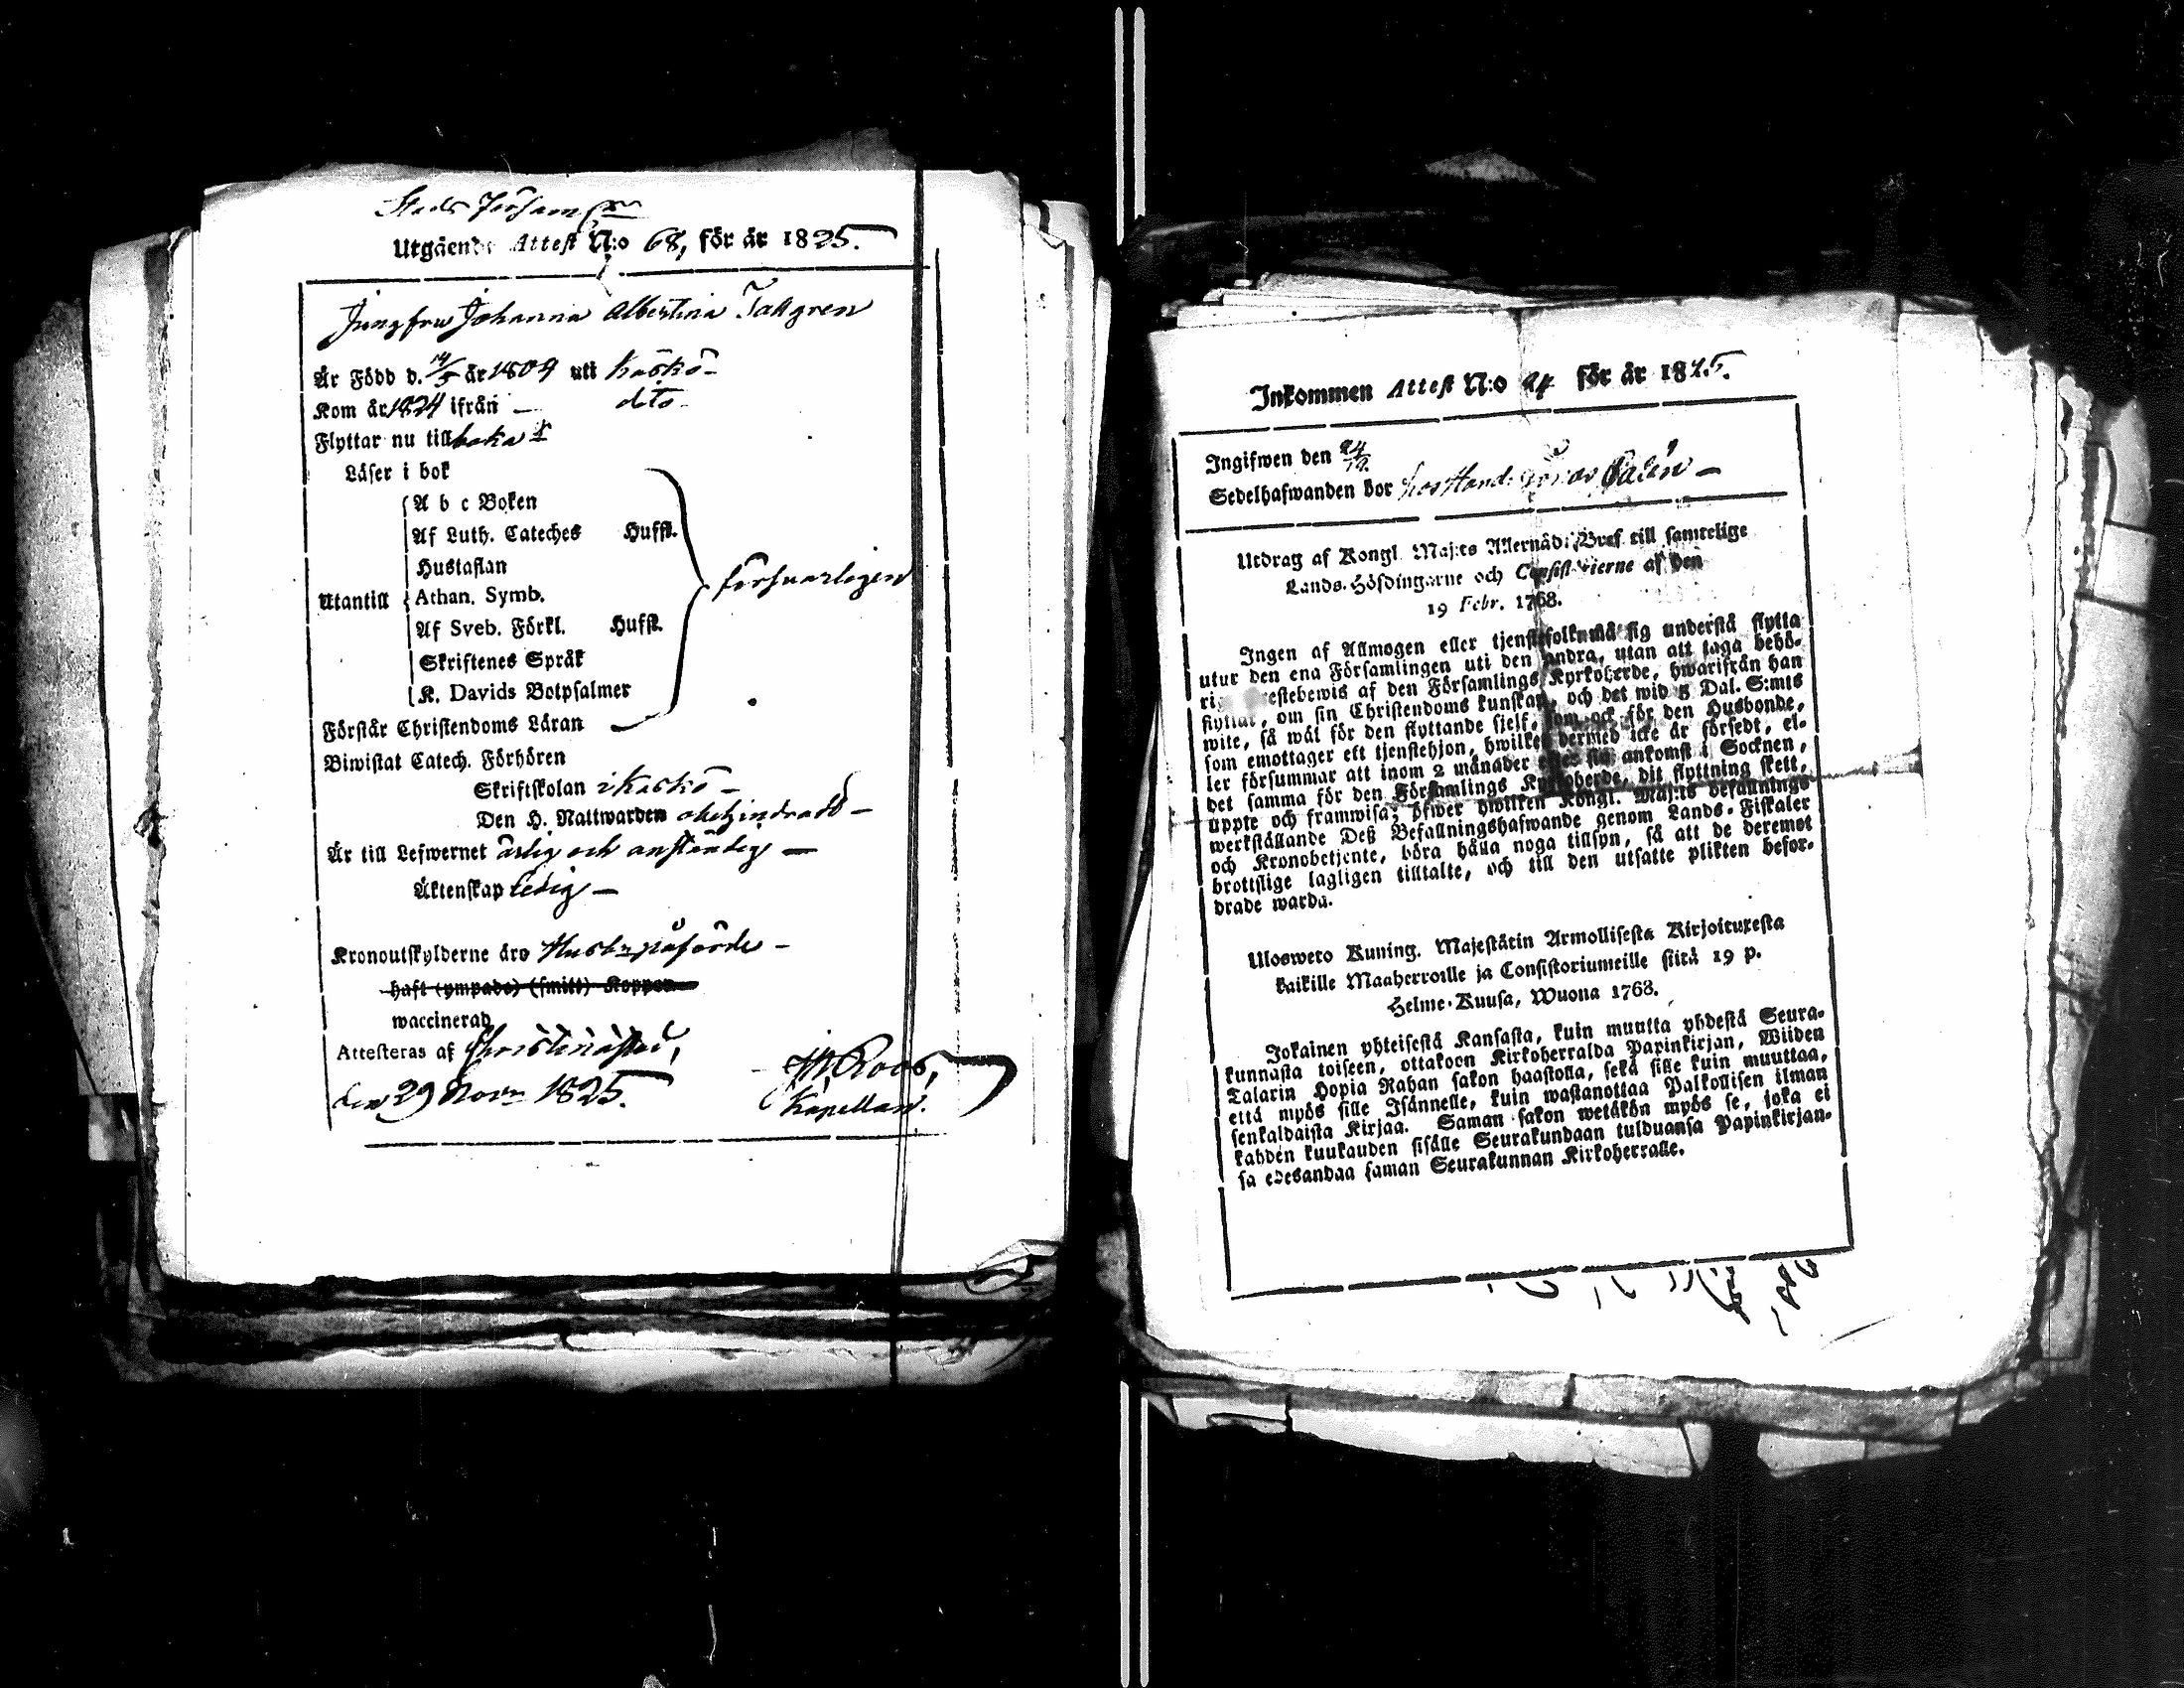 Stads Församl.
Utgående Attest N:o 68, för år 1825.
Jungfru Johanna Albertina Tallgren
Är Född d. 14/5 år 1809 uti Kaskö
Kom år 1824 ifrån — dito
Flyttar nu tillbaka
Läser i bok
A b c Boken
Af Luth. Cateches Hufst.
Hustaflan
Utantill Athan. Symb. försvarligen
Af Sveb. Förkl. Hufst.
Skriftenes Språk
K. Davids Botpsalmer
Förstår Christendoms Läran
Biwistat Catech. Förhören
Skriftskolan i Kaskö —
Den H. Nattwarden obehindradt —
Är till Lefwernet ärlig och anständig —
Äktenskap ledig —
Kronoutskylderne äro påförde —
haft (ympade) (smitt) Koppor
waccinerad
Attesteras af Christinæstad,
den 29 Nov. 1825. Roos,
Kapellan.
Inkommen Attest N:o 24 för år 1825.
Ingifwen den 24/12.
Sedelhafwanden bor hos Hand. Jonas Palén —
Utdrag af Kongl. Maj:ts Allernåd. Bref till samtelige
Lands-Höfdingarne och Consistorierne af den
19 Febr. 1768.
Ingen af Allmogen eller tjenstefolk må sig understå flytta
utur den ena Församlingen uti den andra, utan att taga behö-
rig Prestebewis af den Församlings Kyrkoherde, hwarifrån han
flyttat, om sin Christendoms kunskap, och det wid 5 Dal. S:mts
wite, så wäl för den flyttande sjelf, som ock för den Husbonde,
som emottager ett tjenstehjon, hwilket dermed icke är försedt, el-
ler försummar att inom 2 månader efter sin ankomst i Socknen,
det samma för den Församlings Kyrkoherde, dit flyttning skett,
uppte och framwisa; öfwer hwilken Kongl. Maj:ts befallnings
werkställande Deß Befallningshafwande genom Lands-Fiskaler
och Kronobetjente, böra hålla noga tillsyn, så att de deremot
brottslige lagligen tilltalte, och till den utsatte plikten befor-
drade warda.
Ulosweto Kuning. Majestätin Armollisesta Kirjoituxesta
kaikille Maaherroille ja Consistoriumeille siitä 19 p.
Helme-Kuusa, Wuona 1768.
Jokainen yhteisestä Kansasta, kuin muutta yhdestä Seura-
kunnasta toiseen, ottakoen Kirkoherralda Papinkirjan, Wiiden
Talarin Hopia Rahan sakon haastolla, sekä sille kuin muuttaa,
että myös sille Isännelle, kuin wastanottaa Palkollisen ilman
senkaldaista Kirjaa. Saman sakon wetäkön myös se, joka ei
kahden kuukauden sisälle Seurakundaan tulduansa Papinkirjan-
sa edesandaa saman Seurakunnan Kirkoherralle.